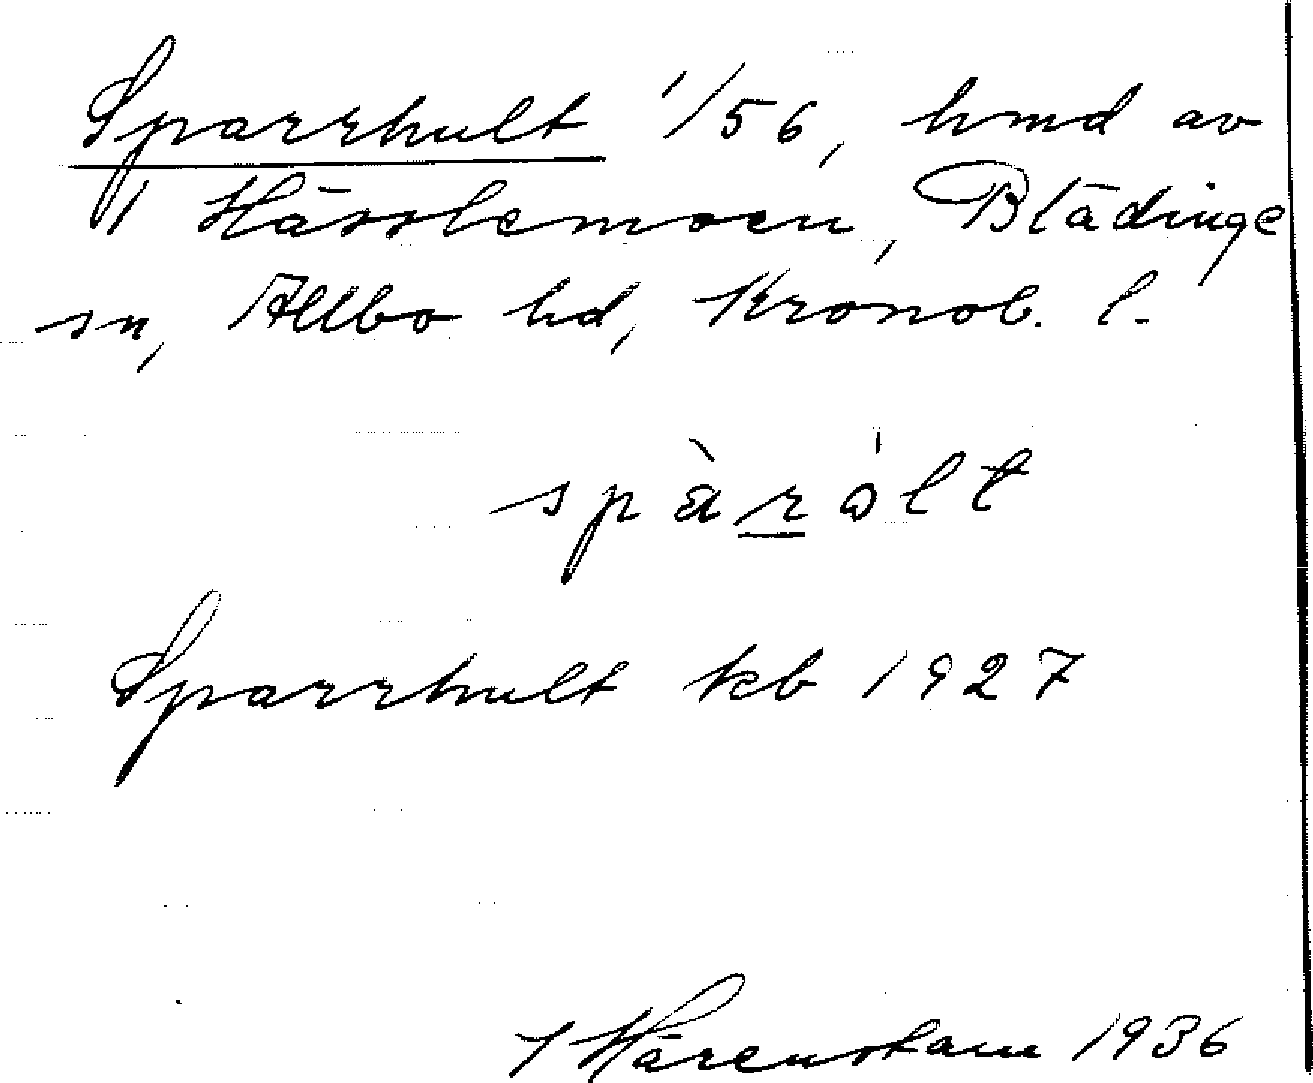 Sparrhult 1/56, hmd av
1 Hässlemoen, Blädinge
sn, Allbo hd, Kronob. l.
spàrólt
Sparrhult kb 1927
Härenstam 1936